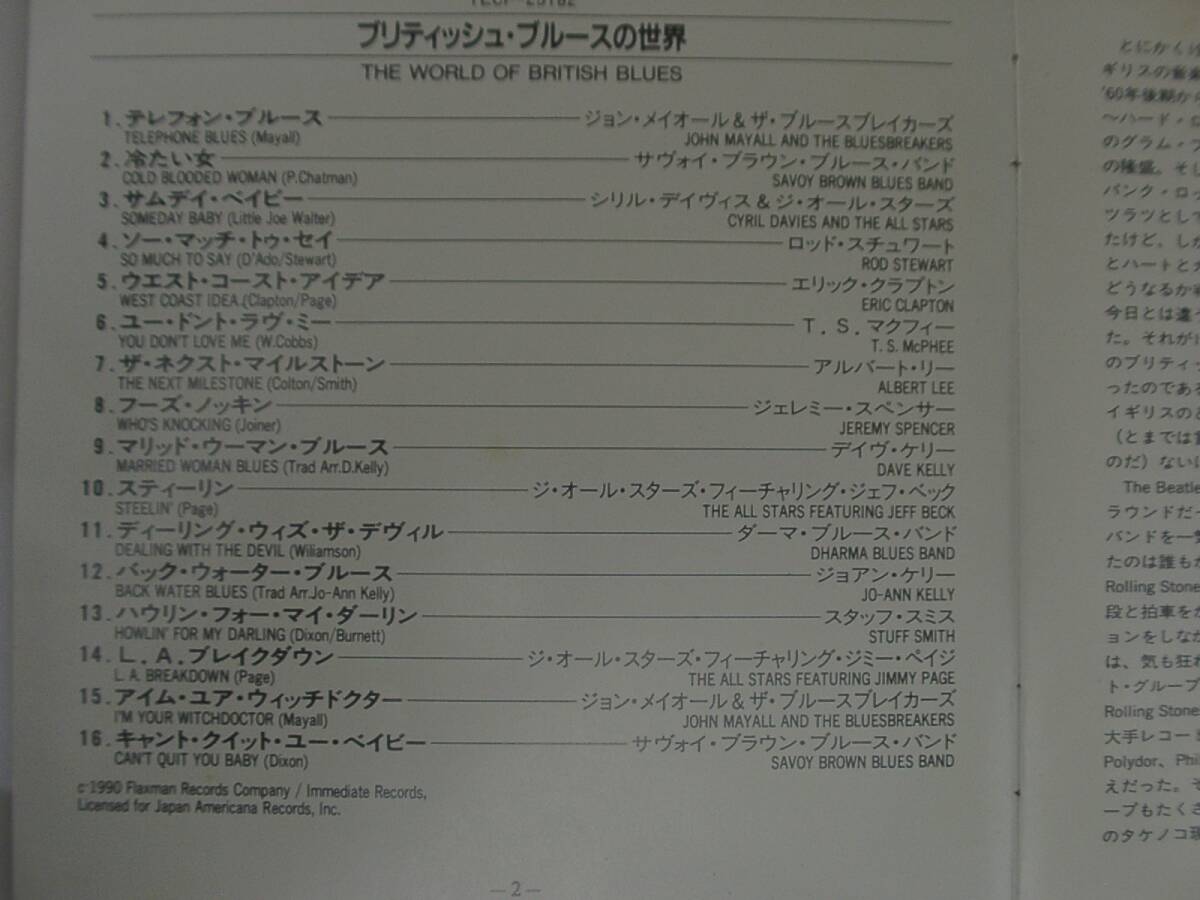 ブリティッシュ・ブルースの世界
THE WORLD OF BRITISH BLUES
1. テレフォン・ブルース ジョン・メイオール & ザ・ブルースブレイカーズ
TELEPHONE BLUES (Mayall) JOHN MAYALL AND THE BLUESBREAKERS
2. 冷たい女 サヴォイ・ブラウン・ブルース・バンド
COLD BLOODED WOMAN (P.Chatman) SAVOY BROWN BLUES BAND
3. サムデイ・ベイビー シリル・デイヴィス & ジ・オール・スターズ
SOMEDAY BABY (Little Joe Walter) CYRIL DAVIES AND THE ALL STARS
4. ソー・マッチ・トゥ・セイ ロッド・スチュワート
SO MUCH TO SAY (D'Ado/Stewart) ROD STEWART
5. ウエスト・コースト・アイデア エリック・クラプトン
WEST COAST IDEA (Clapton/Page) ERIC CLAPTON
6. ユー・ドント・ラヴ・ミー T.S.マクフィー
YOU DON'T LOVE ME (W.Cobbs) T. S. McPHEE
7. ザ・ネクスト・マイルストーン アルバート・リー
THE NEXT MILESTONE (Colton/Smith) ALBERT LEE
8. フーズ・ノッキン ジェレミー・スペンサー
WHO'S KNOCKING (Joiner) JEREMY SPENCER
9. マリッド・ウーマン・ブルース デイヴ・ケリー
MARRIED WOMAN BLUES (Trad Arr.D.Kelly) DAVE KELLY
10. スティーリン ジ・オール・スターズ・フィーチャリング・ジェフ・ベック
STEELIN' (Page) THE ALL STARS FEATURING JEFF BECK
11. ディーリング・ウィズ・ザ・デヴィル ダーマ・ブルース・バンド
DEALING WITH THE DEVIL (Wiliamson) DHARMA BLUES BAND
12. バック・ウォーター・ブルース ジョアン・ケリー
BACK WATER BLUES (Trad Arr.Jo-Ann Kelly) JO-ANN KELLY
13. ハウリン・フォー・マイ・ダーリン スタッフ・スミス
HOWLIN' FOR MY DARLING (Dixon/Burnett) STUFF SMITH
14. L.A.ブレイクダウン ジ・オール・スターズ・フィーチャリング・ジミー・ペイジ
L. A. BREAKDOWN (Page) THE ALL STARS FEATURING JIMMY PAGE
15. アイム・ユア・ウィッチドクター ジョン・メイオール & ザ・ブルースブレイカーズ
I'M YOUR WITCHDOCTOR (Mayall) JOHN MAYALL AND THE BLUESBREAKERS
16. キャント・クイット・ユー・ベイビー サヴォイ・ブラウン・ブルース・バンド
CAN'T QUIT YOU BABY (Dixon) SAVOY BROWN BLUES BAND
c 1990 Flaxman Records Company / Immediate Records,
Licensed for Japan Americana Records, Inc.
—2—
とにかく
ギリスの音楽
'60年後期から
〜ハード・ロ
のグラム・
の隆盛。そし
パンク・ロッ
ツラツとして
たけど、しか
とハートと
どうなるか
今日とは違
た。それが
のブリティッ
ったのである
イギリスの
(とまでは
のだ) ない
The Beatle
ラウンドだ
バンドを一
たのは誰も
Rolling Stone
段と拍車を
ョンをしなが
は、気も狂
ト・グループ
Rolling Stones
大手レコー
Polydor、Phi
えだった。そ
ープもたくさ
のタケノコ